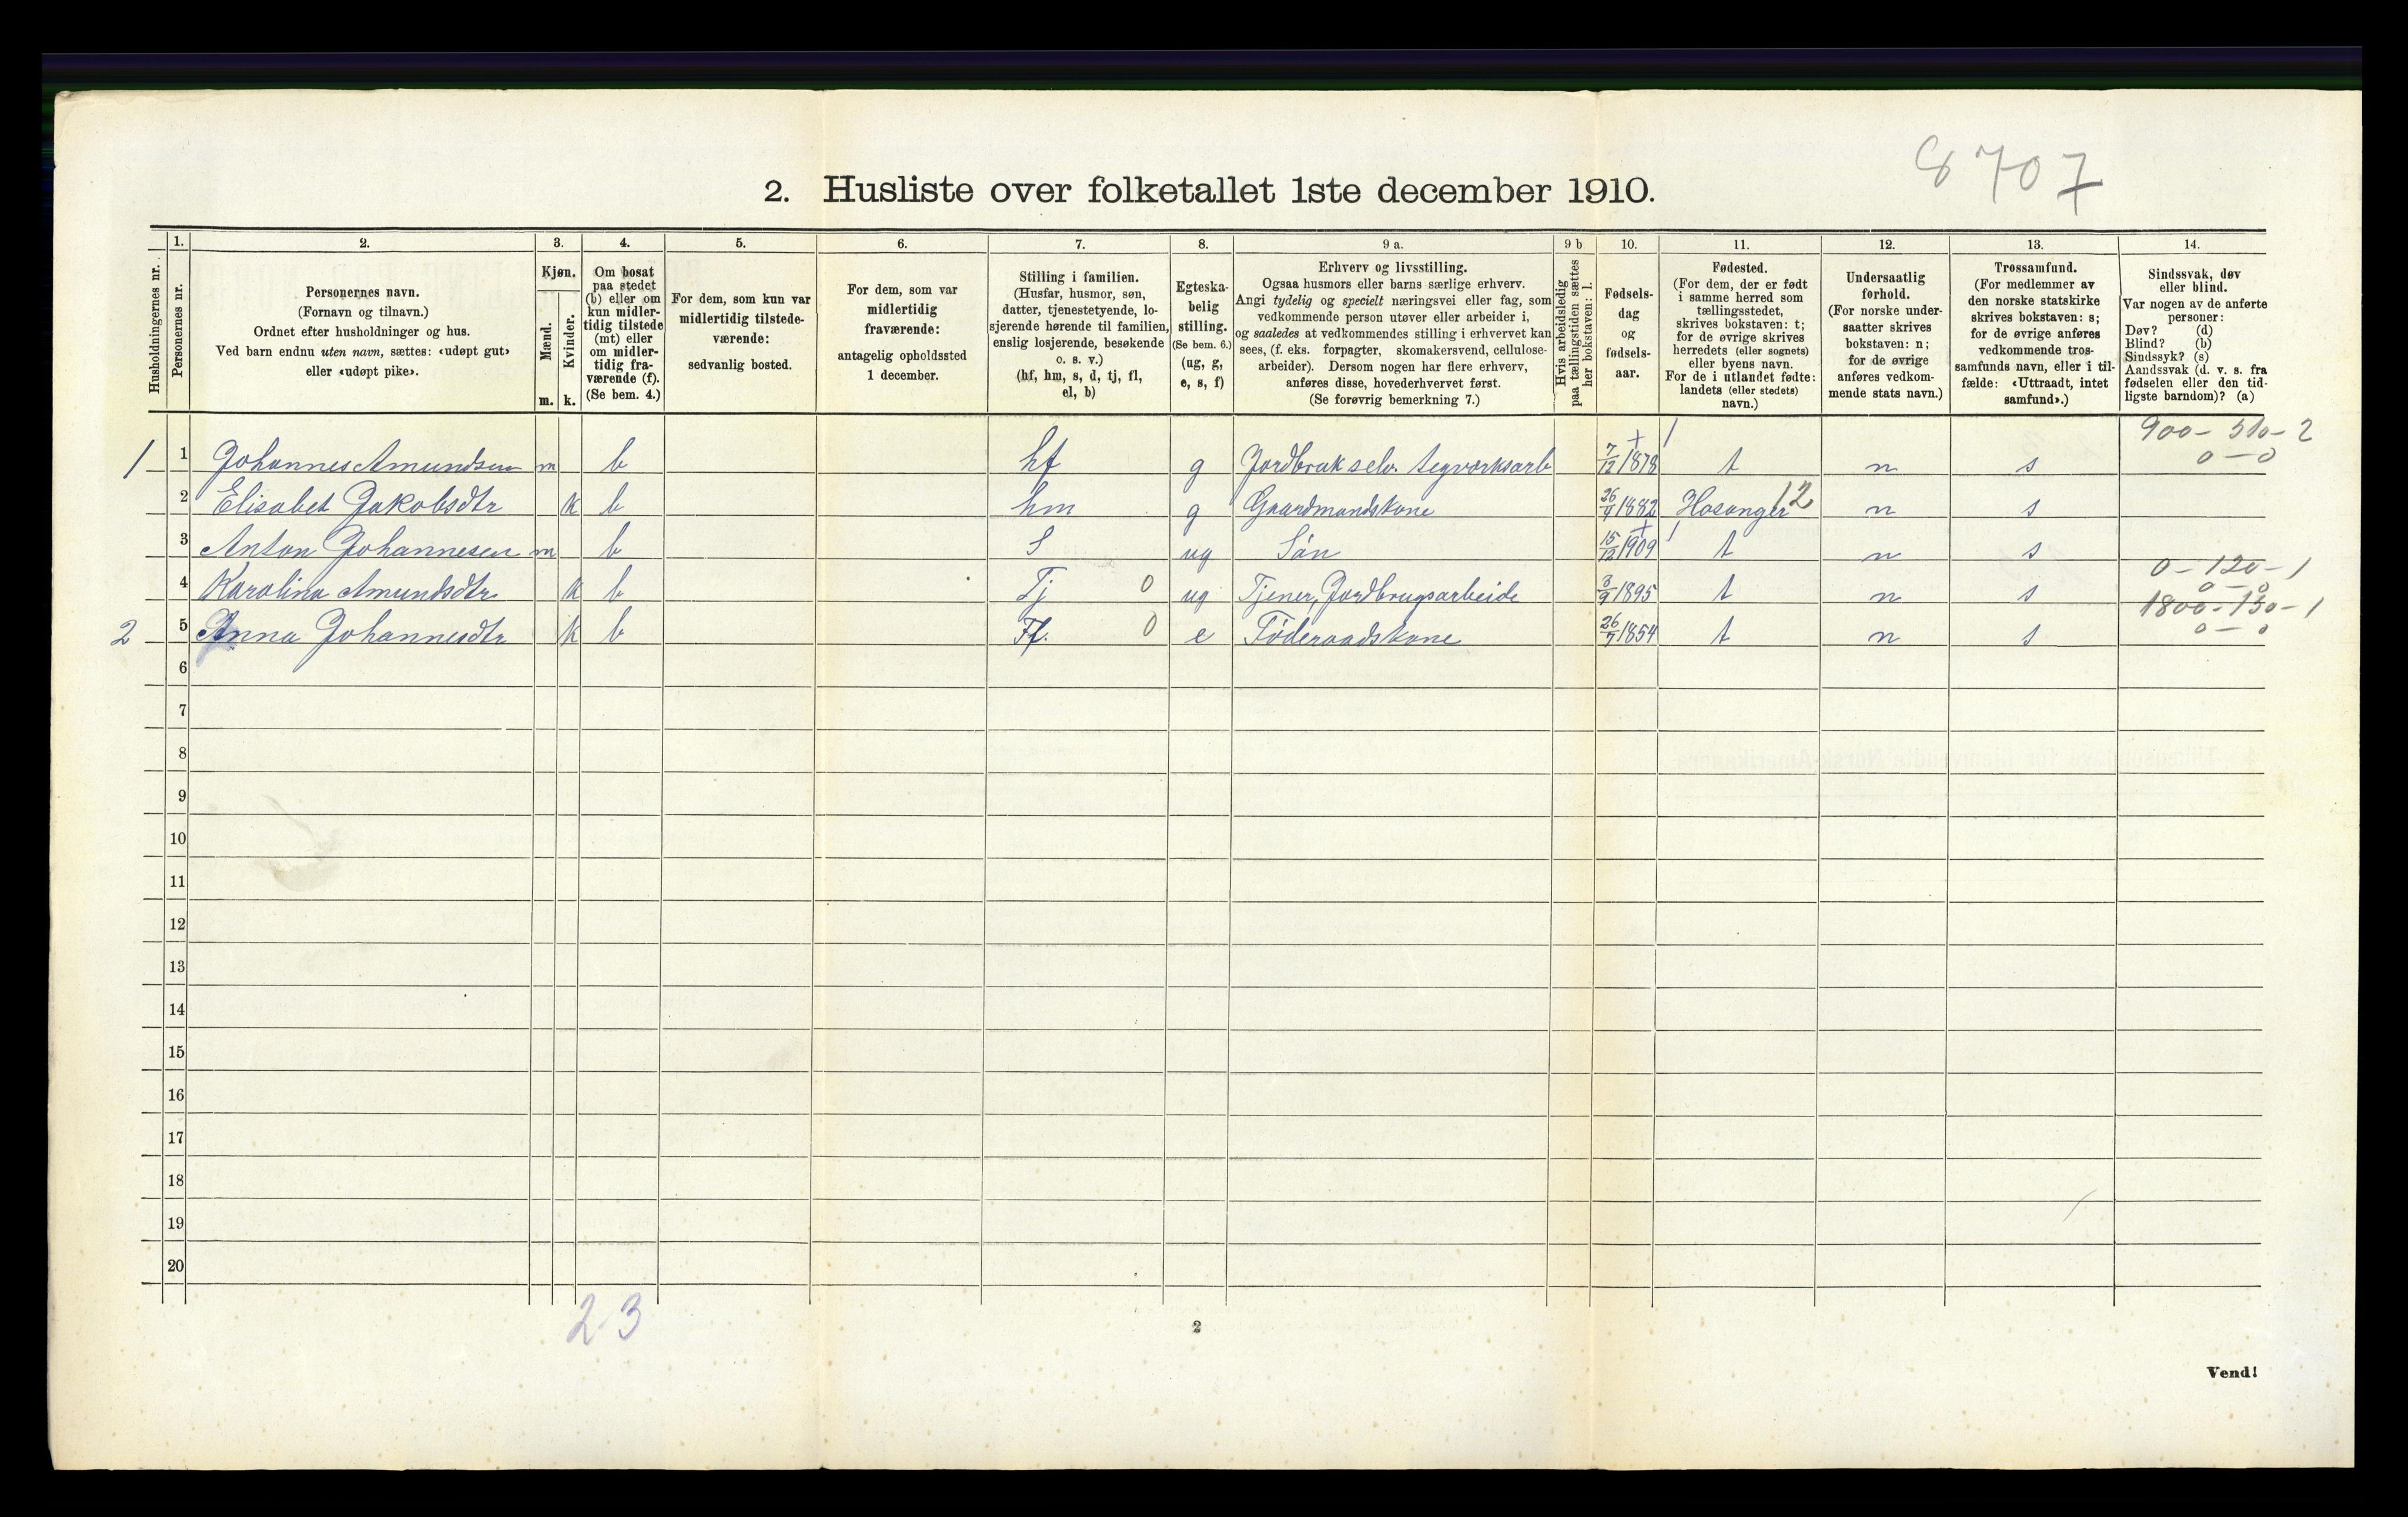 8707
2. Husliste over folketallet 1ste december 1910.
Husholdningernes nr.
1.
Personernes nr.
2.
Personernes navn.
(Fornavn og tilnavn.)
Ordnet efter husholdninger og hus.
Ved barn endnu uten navn, sættes: «udøpt gut»
eller «udøpt pike».
3.
Kjøn.
Mænd.
Kvinder.
m. k.
4.
Om bosat
paa stedet
(b) eller om
kun midler-
tidig tilstede
(mt) eller
om midler-
tidig fra-
værende (f).
(Se bem. 4.)
5.
For dem, som kun var
midlertidig tilstede-
værende:
sedvanlig bosted.
6.
For dem, som var
midlertidig
fraværende:
antagelig opholdssted
1 december.
7.
Stilling i familien.
(Husfar, husmor, søn,
datter, tjenestetyende, lo-
sjerende hørende til familien,
enslig losjerende, besøkende
o. s. v.)
(hf, hm, s, d, tj, fl,
el, b)
8.
Egteska-
belig
stilling.
(Se bem. 6.)
(ug, g,
e, s, f)
9 a.
Erhverv og livsstilling.
Ogsaa husmors eller barns særlige erhverv.
Angi tydelig og specielt næringsvei eller fag, som
vedkommende person utøver eller arbeider i,
og saaledes at vedkommendes stilling i erhvervet kan
sees, (f. eks. forpagter, skomakersvend, cellulose-
arbeider). Dersom nogen har flere erhverv,
anføres disse, hovederhvervet først.
(Se forøvrig bemerkning 7.)
9 b
Hvis arbeidsledig
paa tællingstiden sættes
her bokstaven: l.
10.
Fødsels-
dag
og
fødsels-
aar.
11.
Fødested.
(For dem, der er født
i samme herred som
tællingsstedet,
skrives bokstaven: t;
for de øvrige skrives
herredets (eller sognets)
eller byens navn.
For de i utlandet fødte:
landets (eller stedets)
navn.)
12.
Undersaatlig
forhold.
(For norske under-
saatter skrives
bokstaven: n;
for de øvrige
anføres vedkom-
mende stats navn.)
13.
Trossamfund.
(For medlemmer av
den norske statskirke
skrives bokstaven: s;
for de øvrige anføres
vedkommende tros-
samfunds navn, eller i til-
fælde: «Uttraadt, intet
samfund».)
14.
Sindssvak, døv
eller blind.
Var nogen av de anførte
personer:
Døv? (d)
Blind? (b)
Sindssyk? (s)
Aandssvak (d. v. s. fra
fødselen eller den tid-
ligste barndom)? (a)
900 - 510 - 2
1 1 Johannes Amundsen m b hf g Jordbruk selv. tegverksarb 7/12 1878 t n s 0 - 0
2 Elisabet Jakobsdtr k b hm g Gaardmandskone 26/4 1882 Hosanger 12 n s
3 Anton Johannesen m b S ug Søn 15/12 1909 t n s
0 - 120 - 1
4 Karolina Amundsdtr k b Tj 0 ug Tjener, Jordbrugsarbeide 3/9 1895 t n s 0 - 0
1800 - 130 - 1
2 5 Anna Johannesdtr k b Fl. 0 e Føderaadskone 26/7 1854 t n s 0 - 0
6
7
8
9
10
11
12
13
14
15
16
17
18
19
20
2-3
2
Vend!